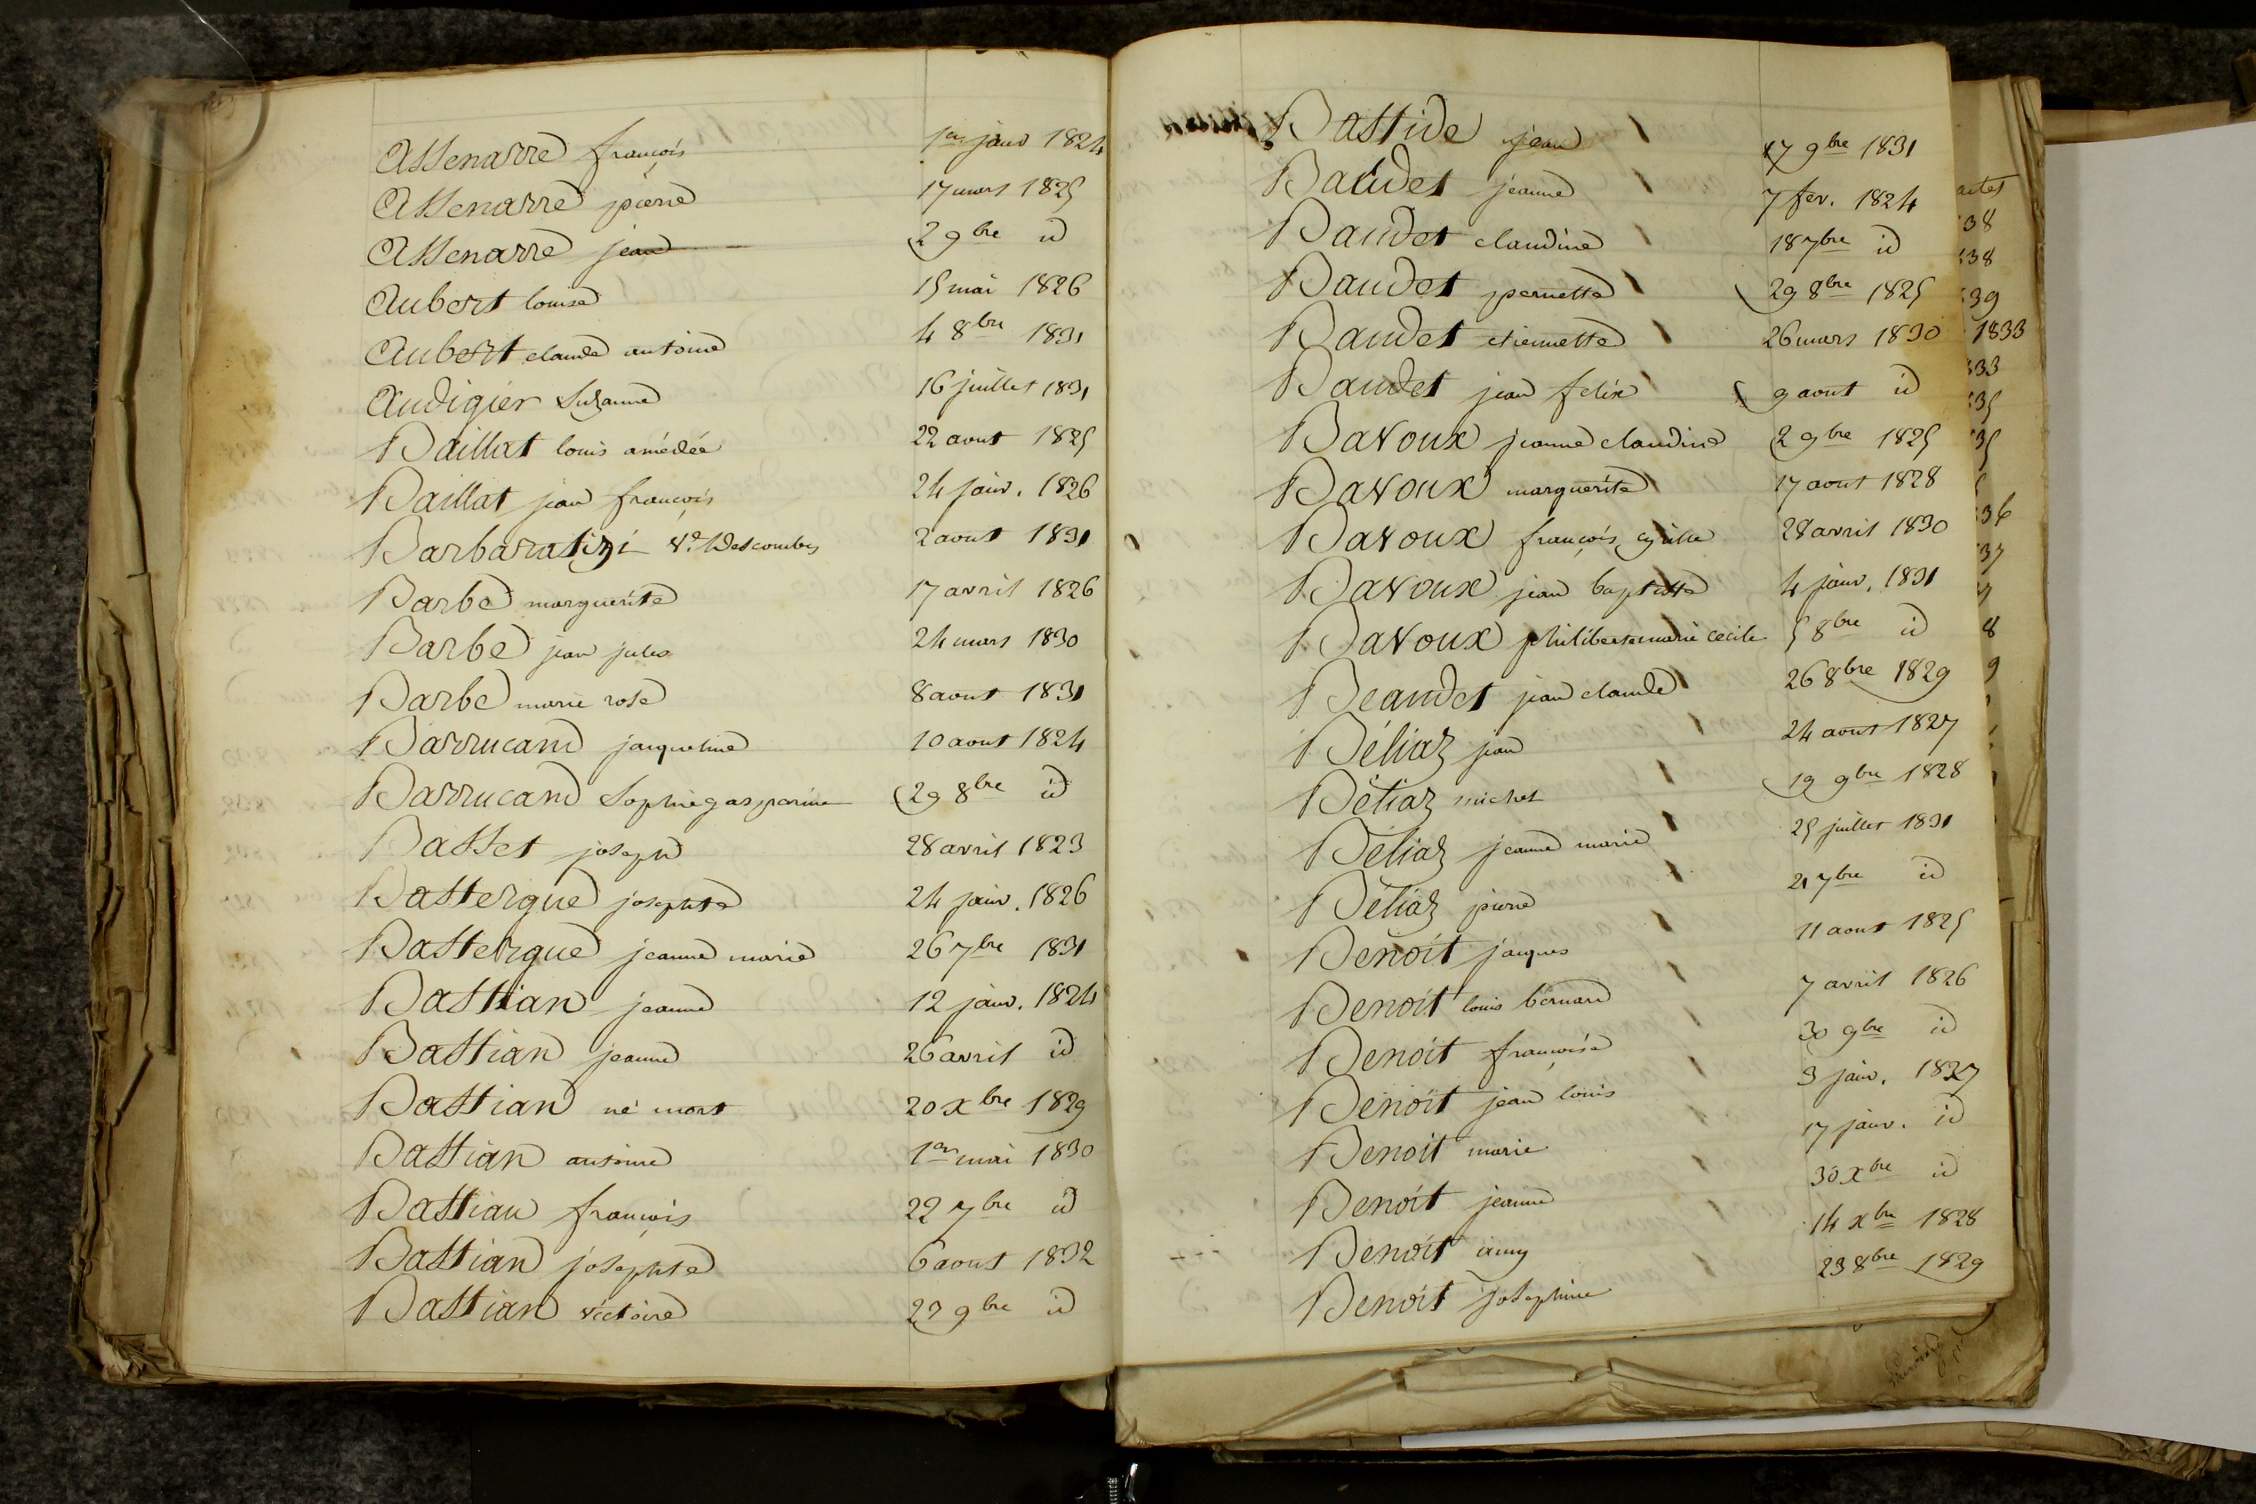 Assenarre françois 1er janv 1824
Assenarre pierre 17 mars 1825
Assenarre jean 2 9bre id
Aubert louise 15 mai 1826
Aubert claude antoine 4 8bre 1831
Audigier Suzanne 16 juillet 1831
Baillat louis amédée 22 aout 1825
Baillat jean françois 24 janv. 1826
Barbaratizi Ve Descombes 2 aout 1831
Barbe marguerite 17 avril 1826
Barbe jean jules 24 mars 1830
Barbe marie rose 8 aout 1831
Barrucand jacqueline 10 aout 1824
Barrucand Sophie gasparine 29 8bre id
Basset joseph 28 avril 1823
Bastergue josephte 24 janv. 1826
Bastergue jeanne marie 26 7bre 1831
Bastian jeanne 12 janv. 1824
Bastian jeanne 26 avril id
Bastian né mort 20 xbre 1829
Bastian antoine 1er mai 1830
Bastian françois 22 7bre id
Bastian josephte 6 aout 1832
Bastian victoire 27 9bre id
Bastide jean 17 9bre 1831
Baudet jeanne 7 fev. 1824
Baudet claudine 18 7bre id
Baudet pernette 29 8bre 1825
Baudet etiennette 26 mars 1830
Baudet jean felix 9 aout id
Bavoux jeanne claudine 2 9bre 1825
Bavoux marguerite 17 aout 1828
Bavoux françois cyrille 28 avril 1830
Bavoux jean baptiste 4 janv. 1831
Bavoux philiberte marie cecile 5 8bre id
Beaudet jean claude 26 8bre 1829
Béliaz jean 24 aout 1827
Béliaz michel 19 9bre 1828
Béliaz jeanne marie 25 juillet 1831
Béliaz pierre 21 7bre id
Benoit jacques 11 aout 1825
Benoit louis bernard 7 avril 1826
Benoit françoise 30 9bre id
Benoit jean louis 3 janv. 1827
Benoit marie 17 janv. id
Benoit jeanne 30 xbre id
Benoit amy 14 xbre 1828
Benoit josephine 23 8bre 1829
actes
38
38
39
1833
33
35
35
36
37
8
9